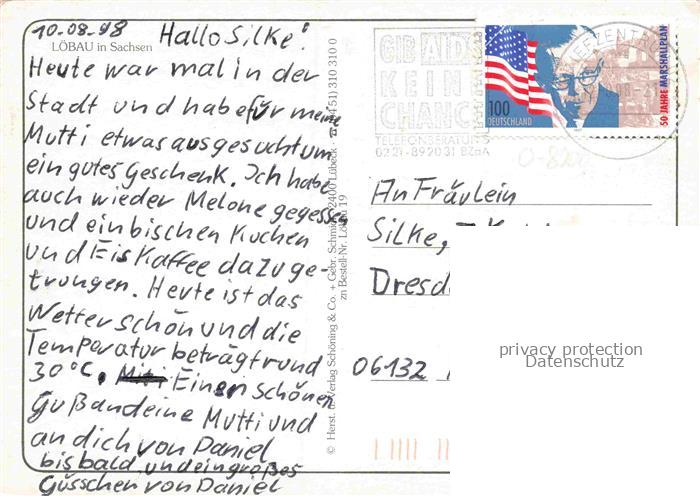 10-08-98
LÖBAU in Sachsen
Hallo Silke!
Heute war mal in der
Stadt und habe für meine
Mutti etwas ausgesucht um
ein gutes Geschenk. Ich habe
auch wieder Melone gegessen
und ein bischen Kuchen
und Eis Kaffee dazu ge-
trungen. Heute ist das
Wetter schön und die
Temperatur beträgt rund
30°C. Einen schönen
Guß an deine Mutti und
an dich von Daniel
bis bald, und ein großes
Güsschen von Daniel
© Herst. u. Verlag Schöning & Co. + Gebr. Schmidt 2400 Lübeck · ☎ (0451) 310 310 0
zu Bestell-Nr. Löbau 19
GIB AIDS
KEINE
CHANCE
TELEFONBERATUNG
0221-892031 BZgA
100
DEUTSCHLAND
50 JAHRE MARSHALLPLAN
An Fräulein
Silke,
Dresd
06132
privacy protection
Datenschutz